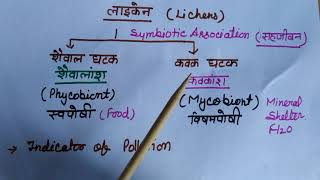 लाइकेन (Lichens)
Symbiotic Association (सहजीवन)
शैवाल घटक
कवक घटक
शैवालांश
कवकांश
(Phycobiont)
(Mycobiont)
Mineral
स्वपोषी (Food)
विषमपोषी
Shelter
H2O
→ Indicator of Pollution